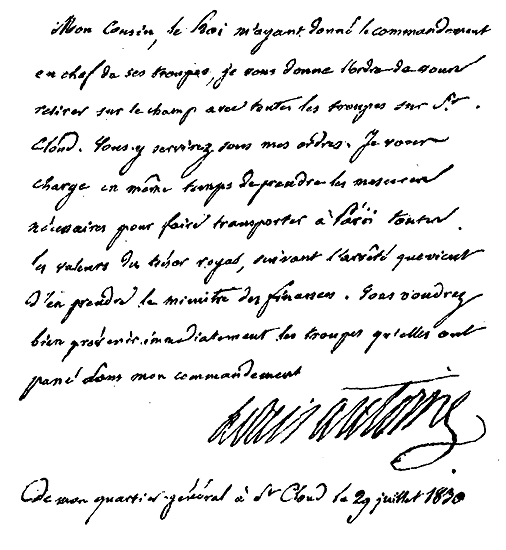 Mon Cousin, le Roi m'ayant donné le commandement
en chef de ses troupes, je vous donne l'ordre de vous
retirer sur le champ avec toutes les troupes sur St.
Cloud. Vous y servirez sous mes ordres. Je vous
charge en même temps de prendre les mesures
nécessaires pour faire transporter à Paris toutes
les valeurs du trésor royal, suivant l'arrêté que vient
d'en prendre le ministre des finances. Vous voudrez
bien prévenir immédiatement les troupes qu'elles ont
passé sous mon commandement
Louis antoine
De mon quartier-général à St Cloud le 29 juillet 1830